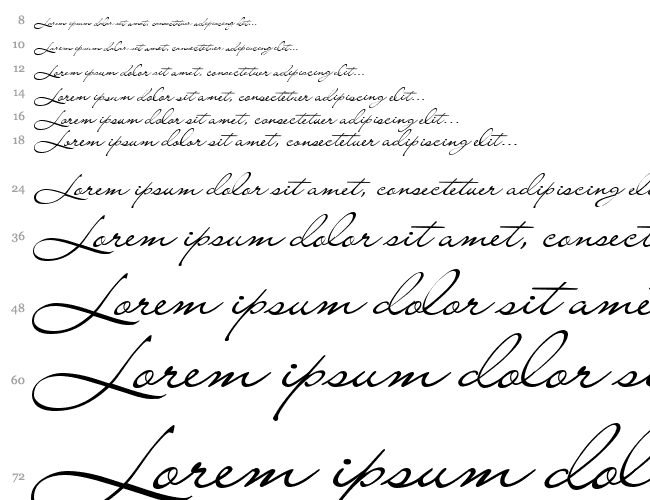 8 Lorem ipsum dolor sit amet, consectetuer adipiscing elit...
10 Lorem ipsum dolor sit amet, consectetuer adipiscing elit...
12 Lorem ipsum dolor sit amet, consectetuer adipiscing elit...
14 Lorem ipsum dolor sit amet, consectetuer adipiscing elit...
16 Lorem ipsum dolor sit amet, consectetuer adipiscing elit...
18 Lorem ipsum dolor sit amet, consectetuer adipiscing elit...
24 Lorem ipsum dolor sit amet, consectetuer adipiscing el
36 Lorem ipsum dolor sit amet, consect
48 Lorem ipsum dolor sit ame
60 Lorem ipsum dolor s
72 Lorem ipsum dol